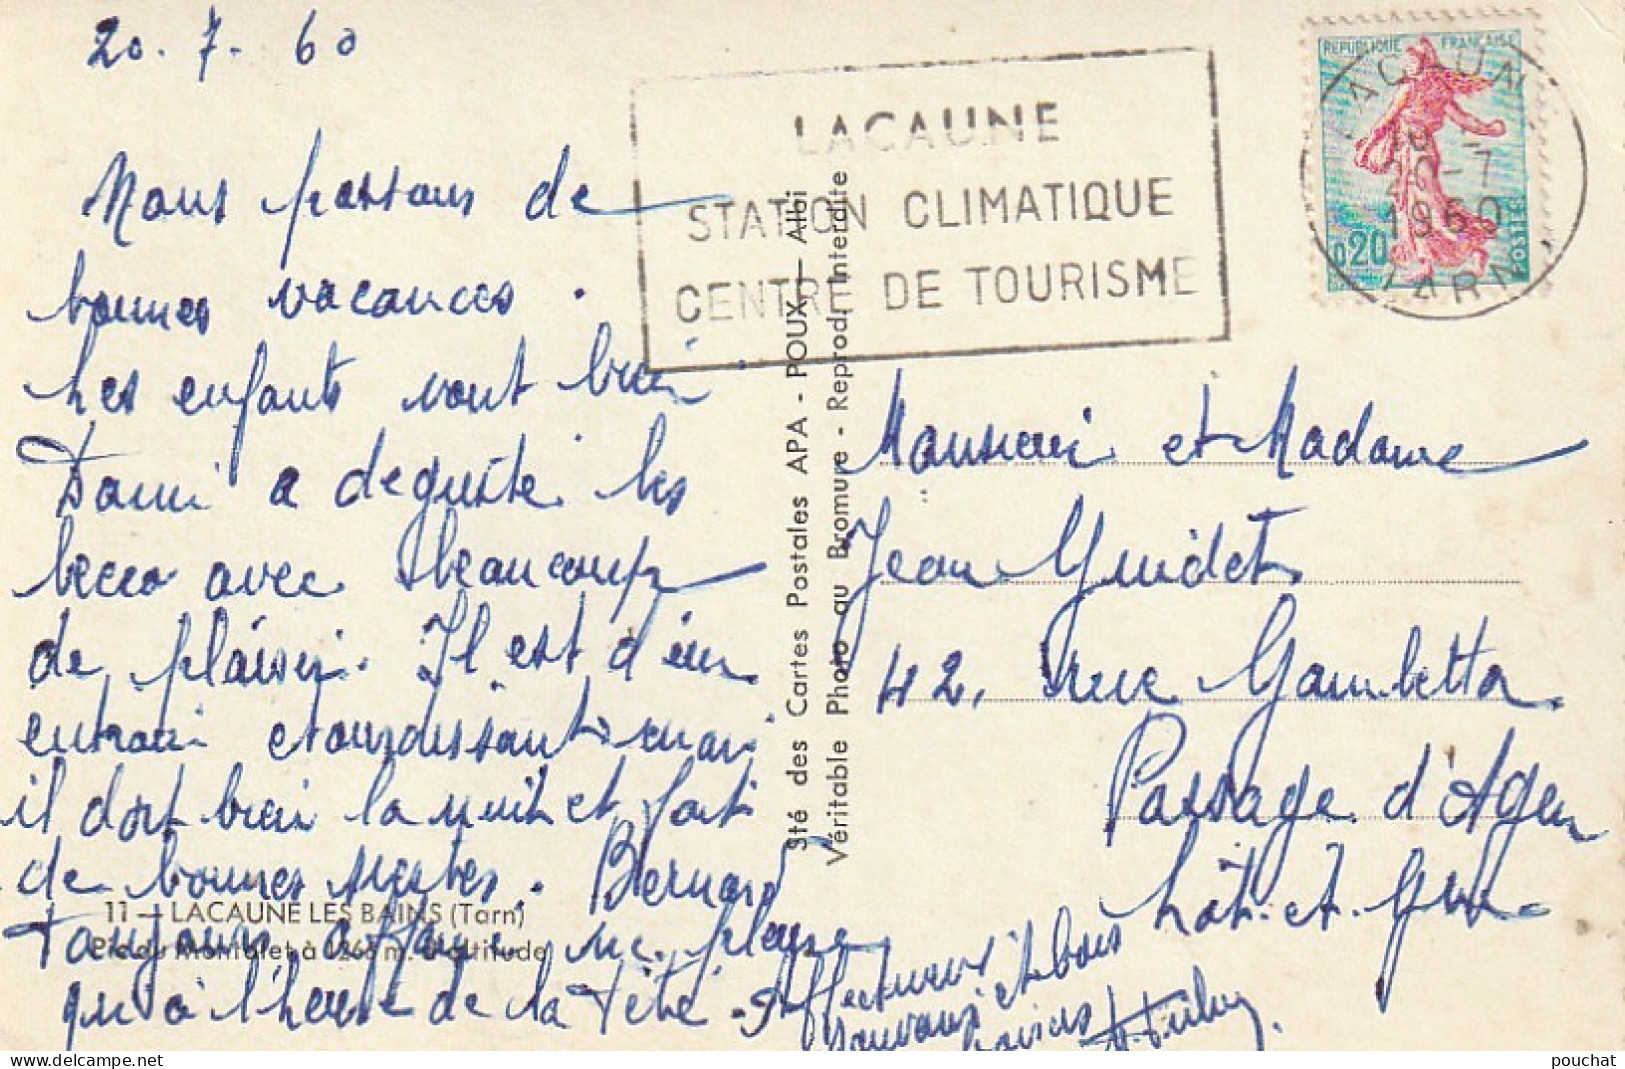 20.7.60
Nous passons de
bonnes vacances.
Les enfants vont bien
Dani a degusté les
becco avec beaucoup
de plaisir. Il est d'un
entrain etourdissant mais
il dort bien la nuit et fait
de bonnes siestes. Bernard
toujours affamé ne pleure
qu'à l'heure de la tété - Affectueux
souvenir et bons
baisers
LACAUNE
STATION CLIMATIQUE
CENTRE DE TOURISME
LACAUNE
18 -
20-7
1960
TARN
REPUBLIQUE FRANÇAISE
0,20
POSTES
Sté des Cartes Postales APA - POUX - Albi
Véritable Photo au Bromure - Reprod. Interdite
Monsieur et Madame
Jean Guidet
42, rue Gambetta
Passage d'Agen
Lot-et-Gne
11 — LACAUNE LES BAINS (Tarn)
Pic du Montalet à 1268 m. d'altitude
pouchat